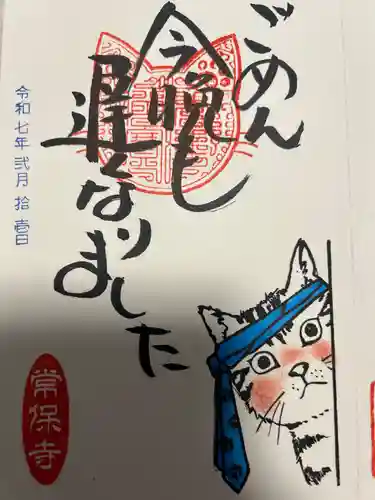 ごめん
今晩も
遅くなり
ました
令和七年弐月拾壱日
常保寺